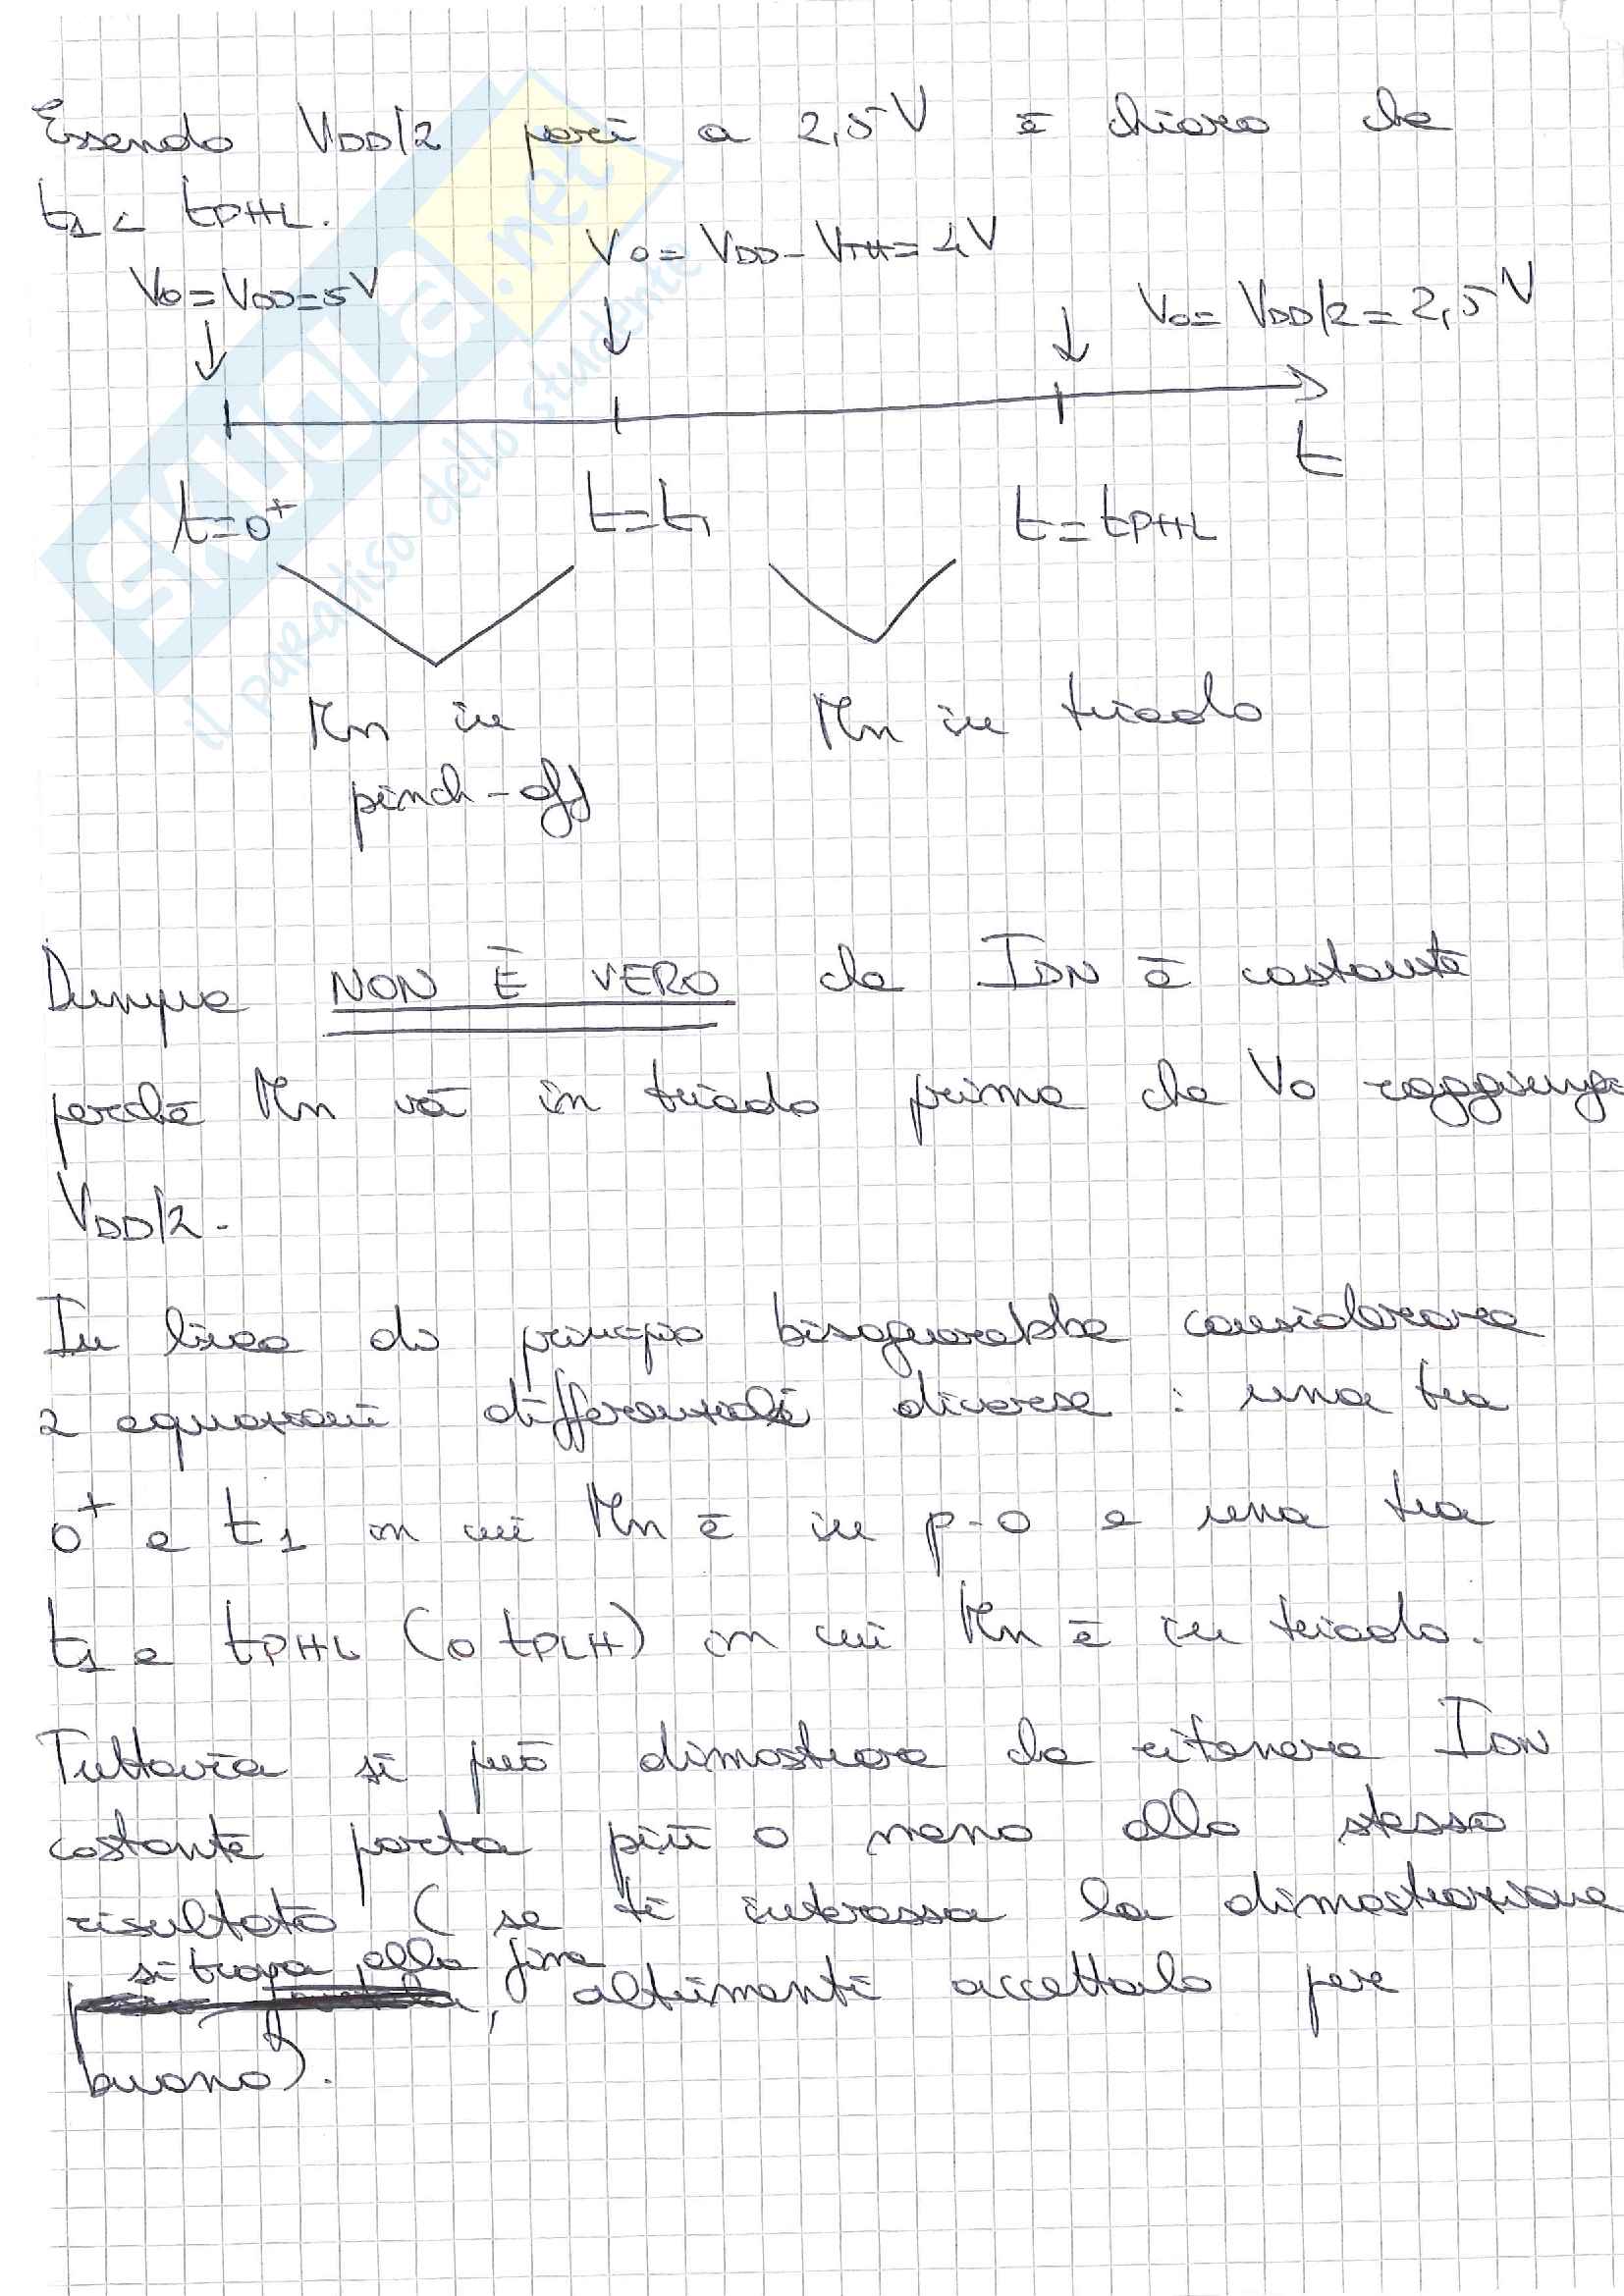 Essendo VDD/2 pari a 2,5V è chiaro che
t1 < tPHL.
V0 = VDD - VTH = 4V
V0 = VDD = 5V
V0 = VDD/2 = 2,5V
t
t=0+
t=t1
t=tPHL
Mn in
Mn in triodo
pinch-off
Dunque NON È VERO che IDN è costante
perchè Mn và in triodo prima che V0 raggiunga
VDD/2.
In linea di principio bisognerebbe considerare
2 equazioni differenziali diverse : una tra
0+ e t1 in cui Mn è in p-o e una tra
t1 e tPHL (o tPLH) in cui Mn è in triodo.
Tuttavia si può dimostrare che ritenere IDN
costante porta più o meno allo stesso
risultato (se ti interessa la dimostrazione
si trova alla fine, altrimenti accettalo per
buono).
SKUOLA.net
il paradiso dello studente